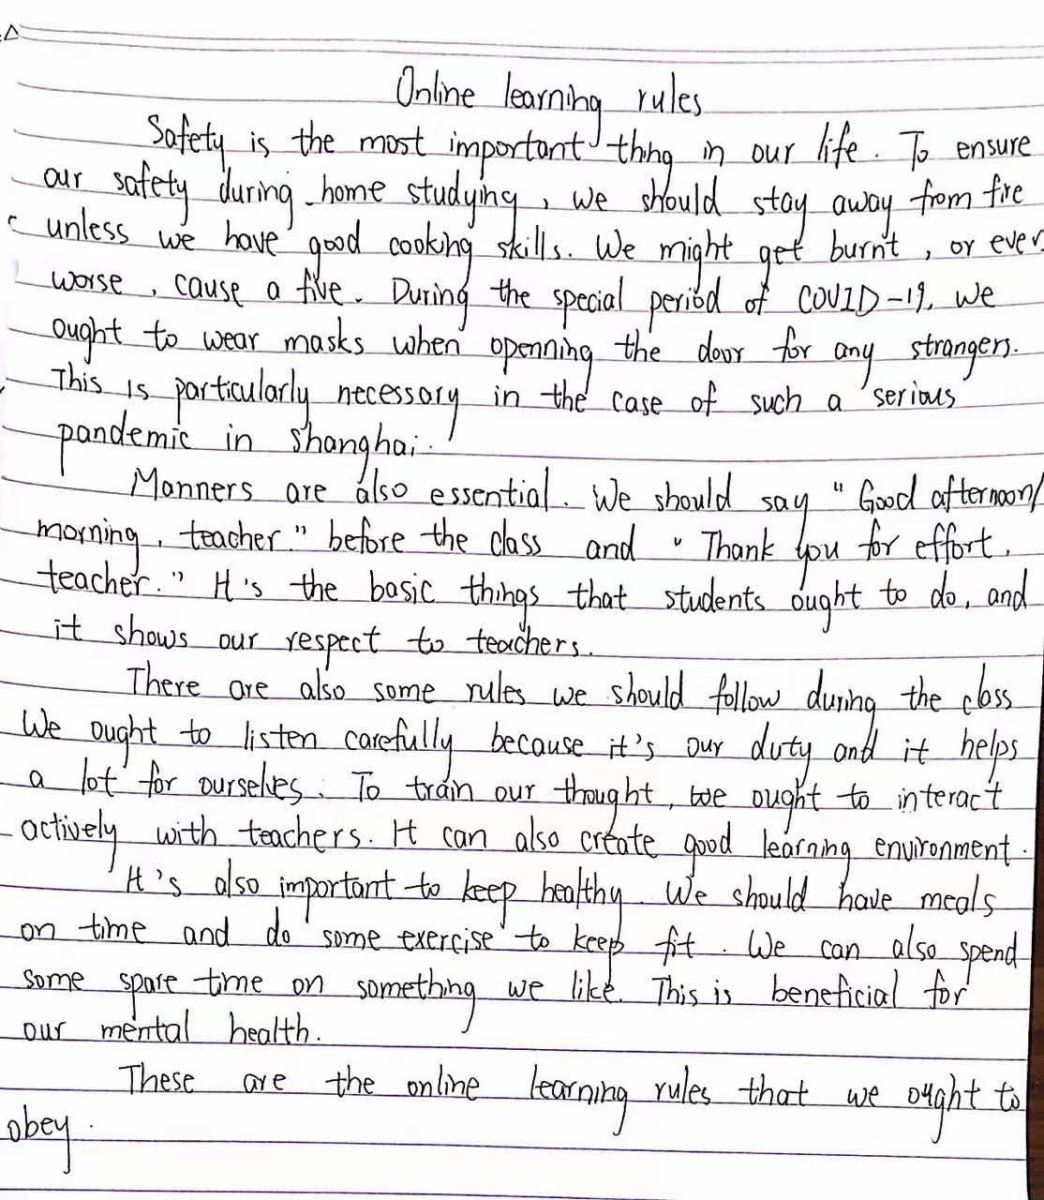 Online learning rules
Safety is the most important thing in our life. To ensure
our safety during home studying, we should stay away from fire
unless we have good cooking skills. We might get burnt, or even
worse, cause a five. During the special period of COVID-19, we
ought to wear masks when openning the door for any strangers.
This is particularly necessary in the case of such a serious
pandemic in Shanghai.
Manners are also essential. We should say "Good afternoon/
morning, teacher." before the class and "Thank you for effort,
teacher." It's the basic things that students ought to do, and
it shows our respect to teachers.
There are also some rules we should follow during the class
We ought to listen carefully because it's our duty and it helps
a lot for ourselves. To train our thought, we ought to interact
actively with teachers. It can also create good learning environment.
It's also important to keep healthy. We should have meals
on time and do some exercise to keep fit. We can also spend
some spare time on something we like. This is beneficial for
our mental health.
These are the online learning rules that we ought to
obey.